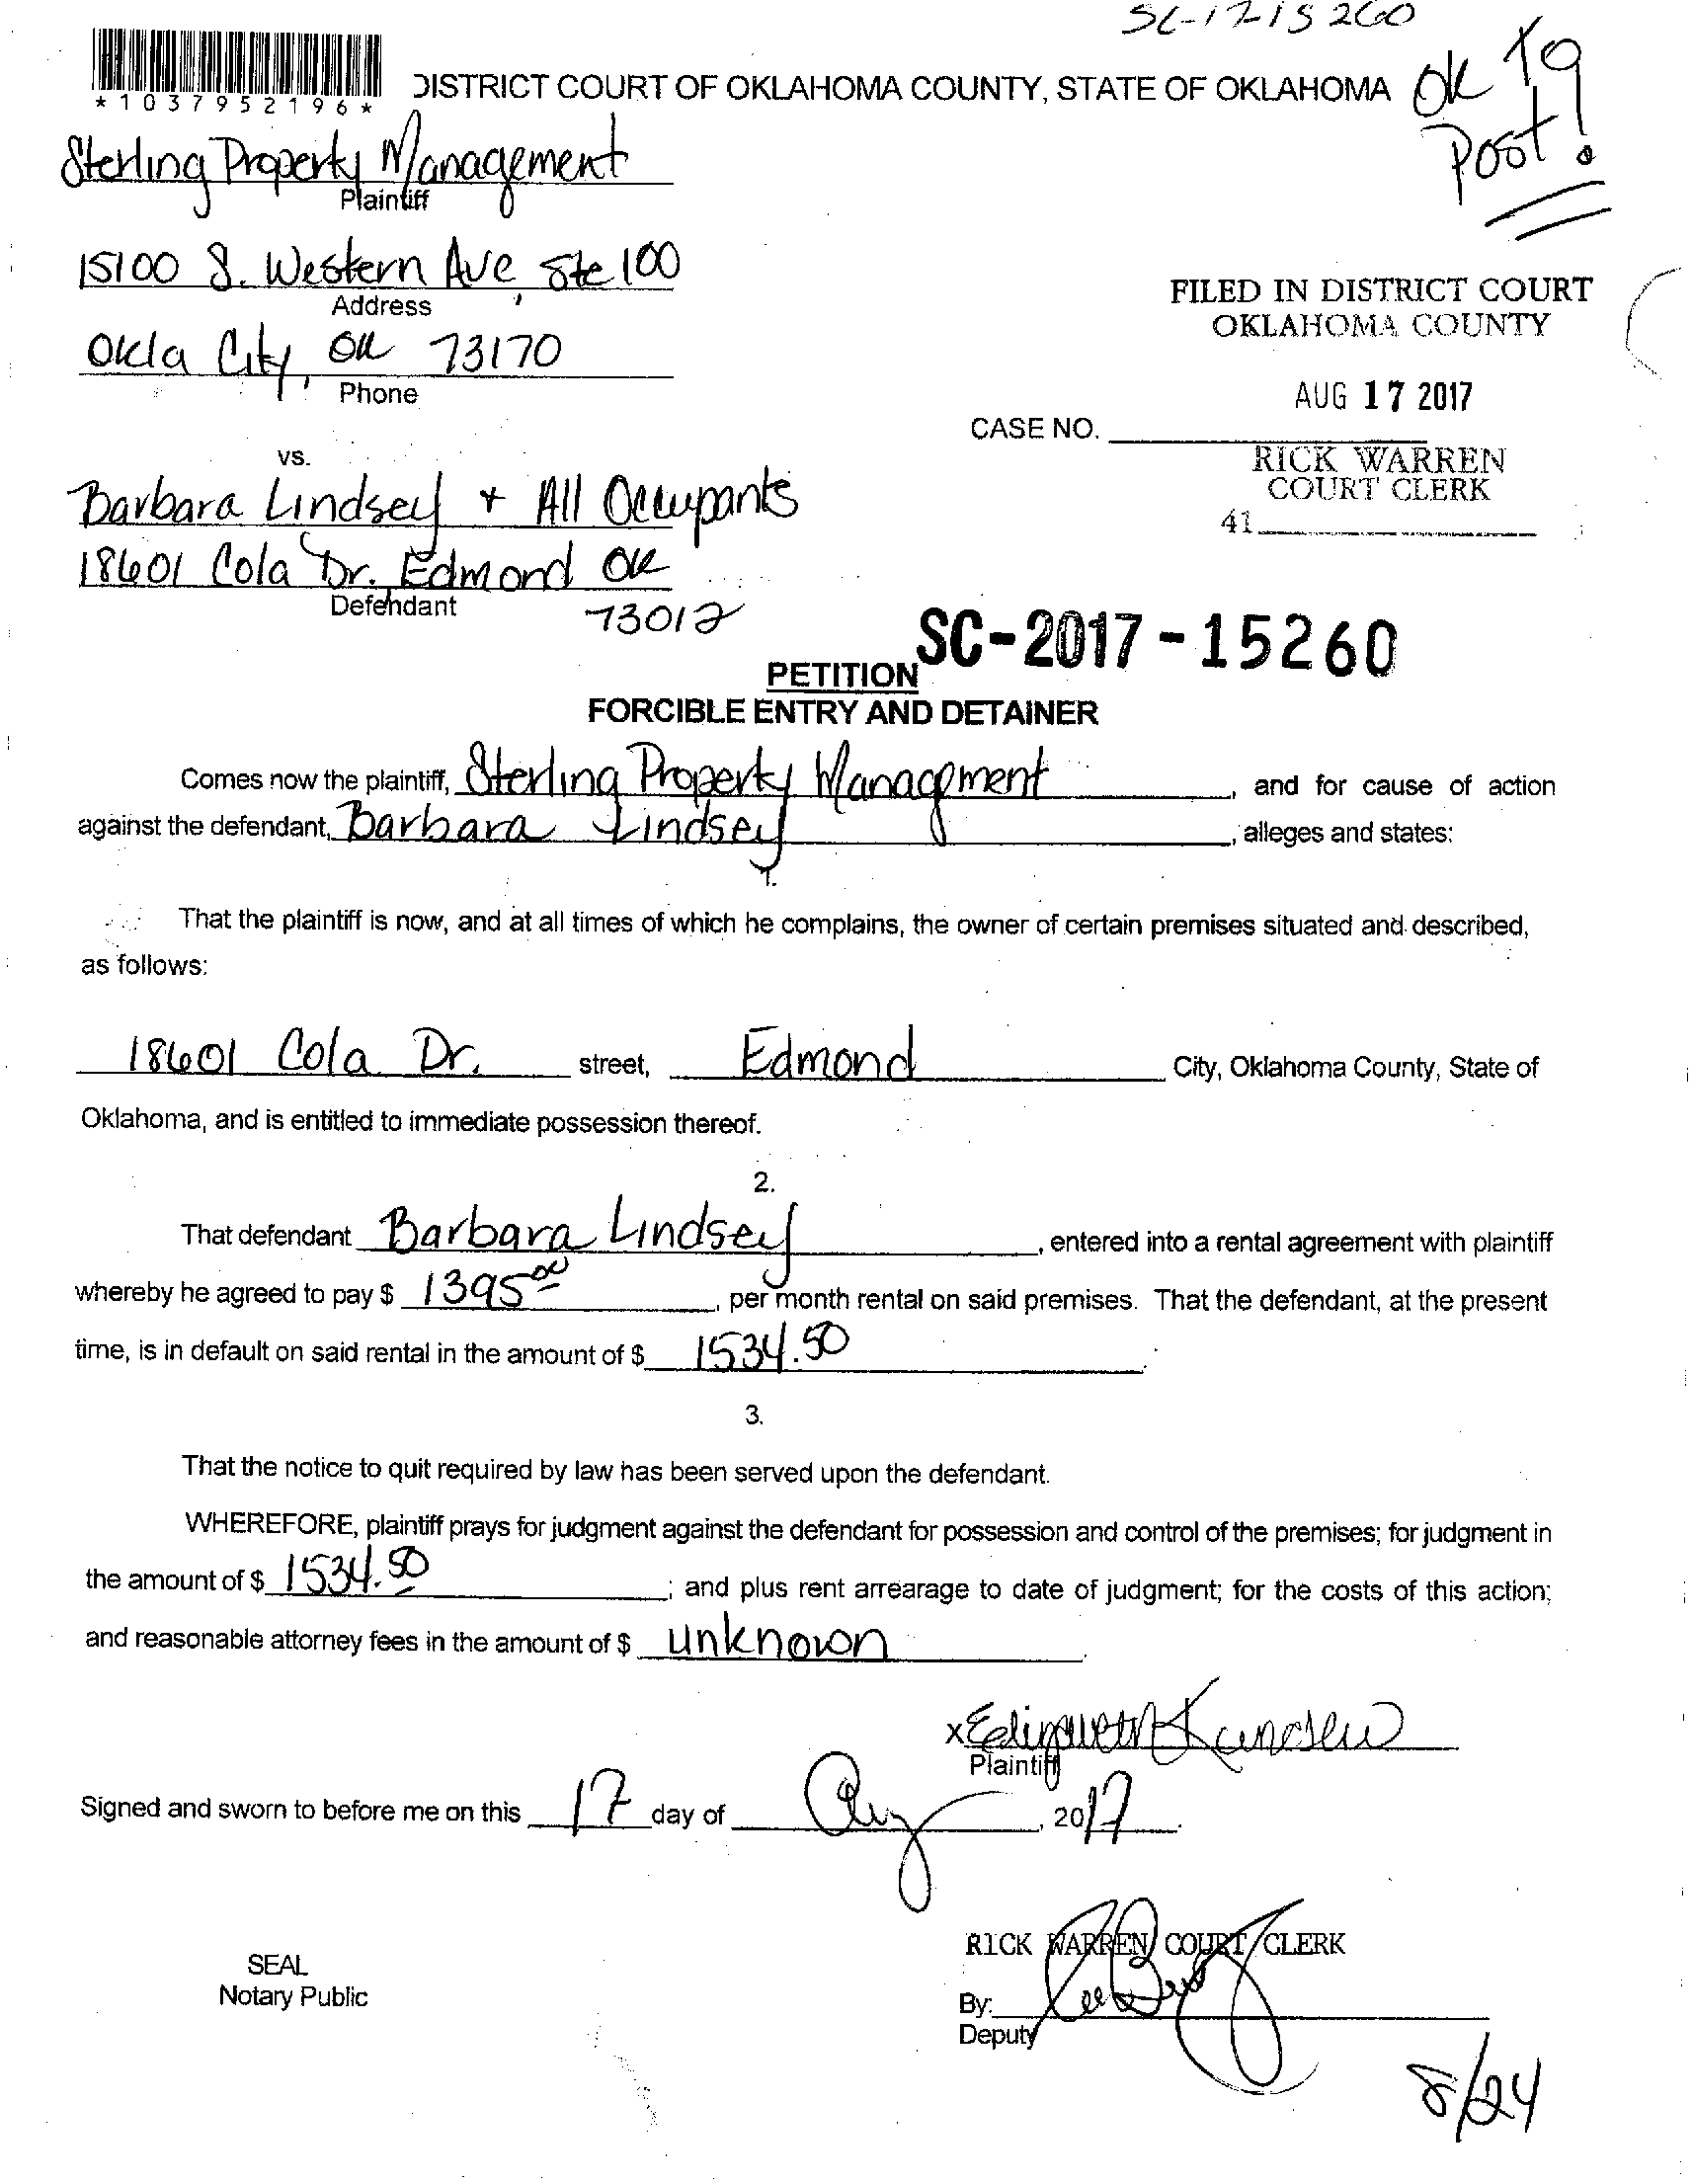 *1037952196*
DISTRICT COURT OF OKLAHOMA COUNTY, STATE OF OKLAHOMA
OK TO
Post!
Sterling Property Management
Plaintiff
15100 S. Western Ave, Ste 100
Address
Okla City, OK 73170
Phone
FILED IN DISTRICT COURT
OKLAHOMA COUNTY
AUG 17 2017
CASE NO.
RICK WARREN
COURT CLERK
41
vs.
Barbara Lindsey + All Occupants
18601 Cola Dr. Edmond OK
Defendant
73012
SC-2017-15260
PETITION
FORCIBLE ENTRY AND DETAINER
Comes now the plaintiff, Sterling Property Management, and for cause of action
against the defendant, Barbara Lindsey, alleges and states:
1.
That the plaintiff is now, and at all times of which he complains, the owner of certain premises situated and described,
as follows:
18601 Cola Dr. street, Edmond City, Oklahoma County, State of
Oklahoma, and is entitled to immediate possession thereof.
2.
That defendant Barbara Lindsey, entered into a rental agreement with plaintiff
whereby he agreed to pay $ 1395.00, per month rental on said premises. That the defendant, at the present
time, is in default on said rental in the amount of $ 1534.50.
3.
That the notice to quit required by law has been served upon the defendant.
WHEREFORE, plaintiff prays for judgment against the defendant for possession and control of the premises; for judgment in
the amount of $ 1534.50; and plus rent arrearage to date of judgment; for the costs of this action;
and reasonable attorney fees in the amount of $ unknown.
x
Plaintiff
Signed and sworn to before me on this 17 day of Aug, 2017.
RICK WARREN COURT CLERK
SEAL
Notary Public
By:
Deputy
8/24